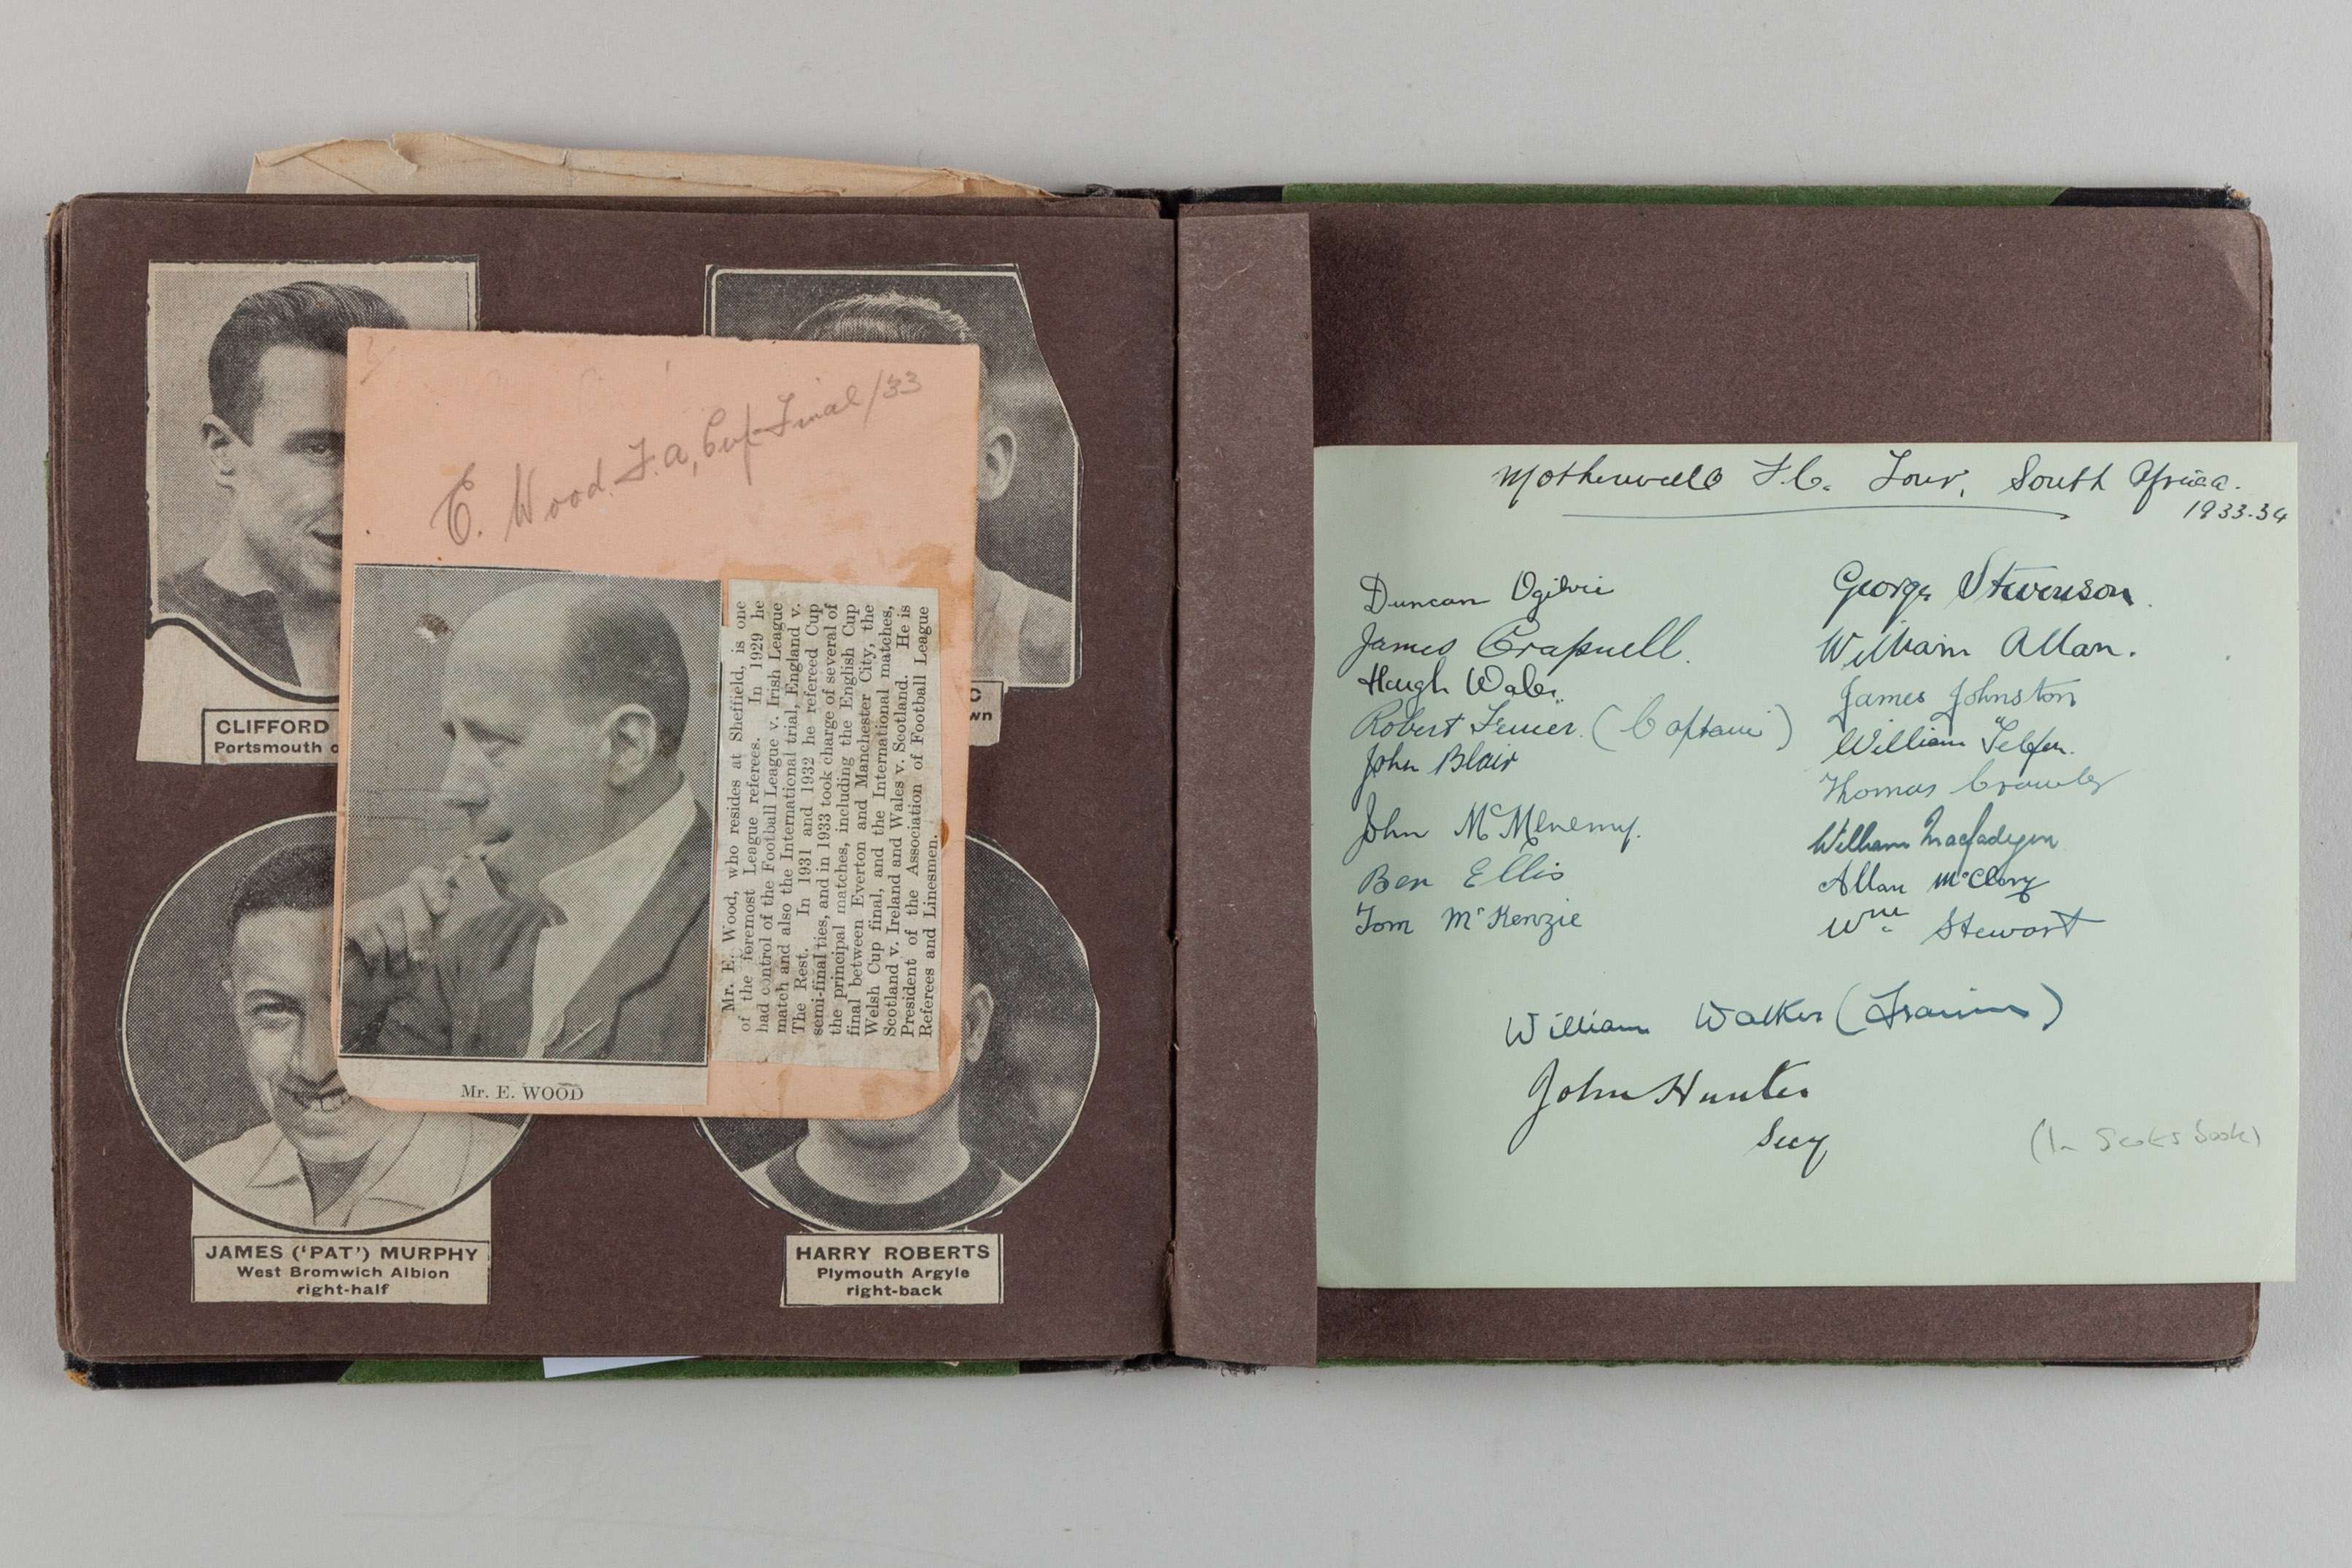 CLIFFORD
Portsmouth o
C
wn
E. Wood. F.A, Cup-Final/33
Mr. E. Wood, who resides at Sheffield, is one
of the foremost League referees. In 1929 he
had control of the Football League v. Irish League
match and also the International trial, England v.
The Rest. In 1931 and 1932 he refereed Cup
semi-final ties, and in 1933 took charge of several of
the principal matches, including the English Cup
final between Everton and Manchester City, the
Welsh Cup final, and the International matches,
Scotland v. Ireland and Wales v. Scotland. He is
President of the Association of Football League
Referees and Linesmen.
Mr. E. WOOD
JAMES ('PAT') MURPHY
West Bromwich Albion
right-half
HARRY ROBERTS
Plymouth Argyle
right-back
Motherwell F.C. Tour, South Africa.
1933-34
Duncan Ogilvie
James Crapnell.
Hugh Wales
Robert Ferrier. (Captain)
John Blair
John McMenemy.
Ben Ellis
Tom McKenzie
George Stevenson.
William Allan.
James Johnston
William Telfer.
Thomas
William Macfadyen
Allan McClory
Wm Stewart
William Walker (Trainer)
John Hunter
Secy
(In Scots Book)